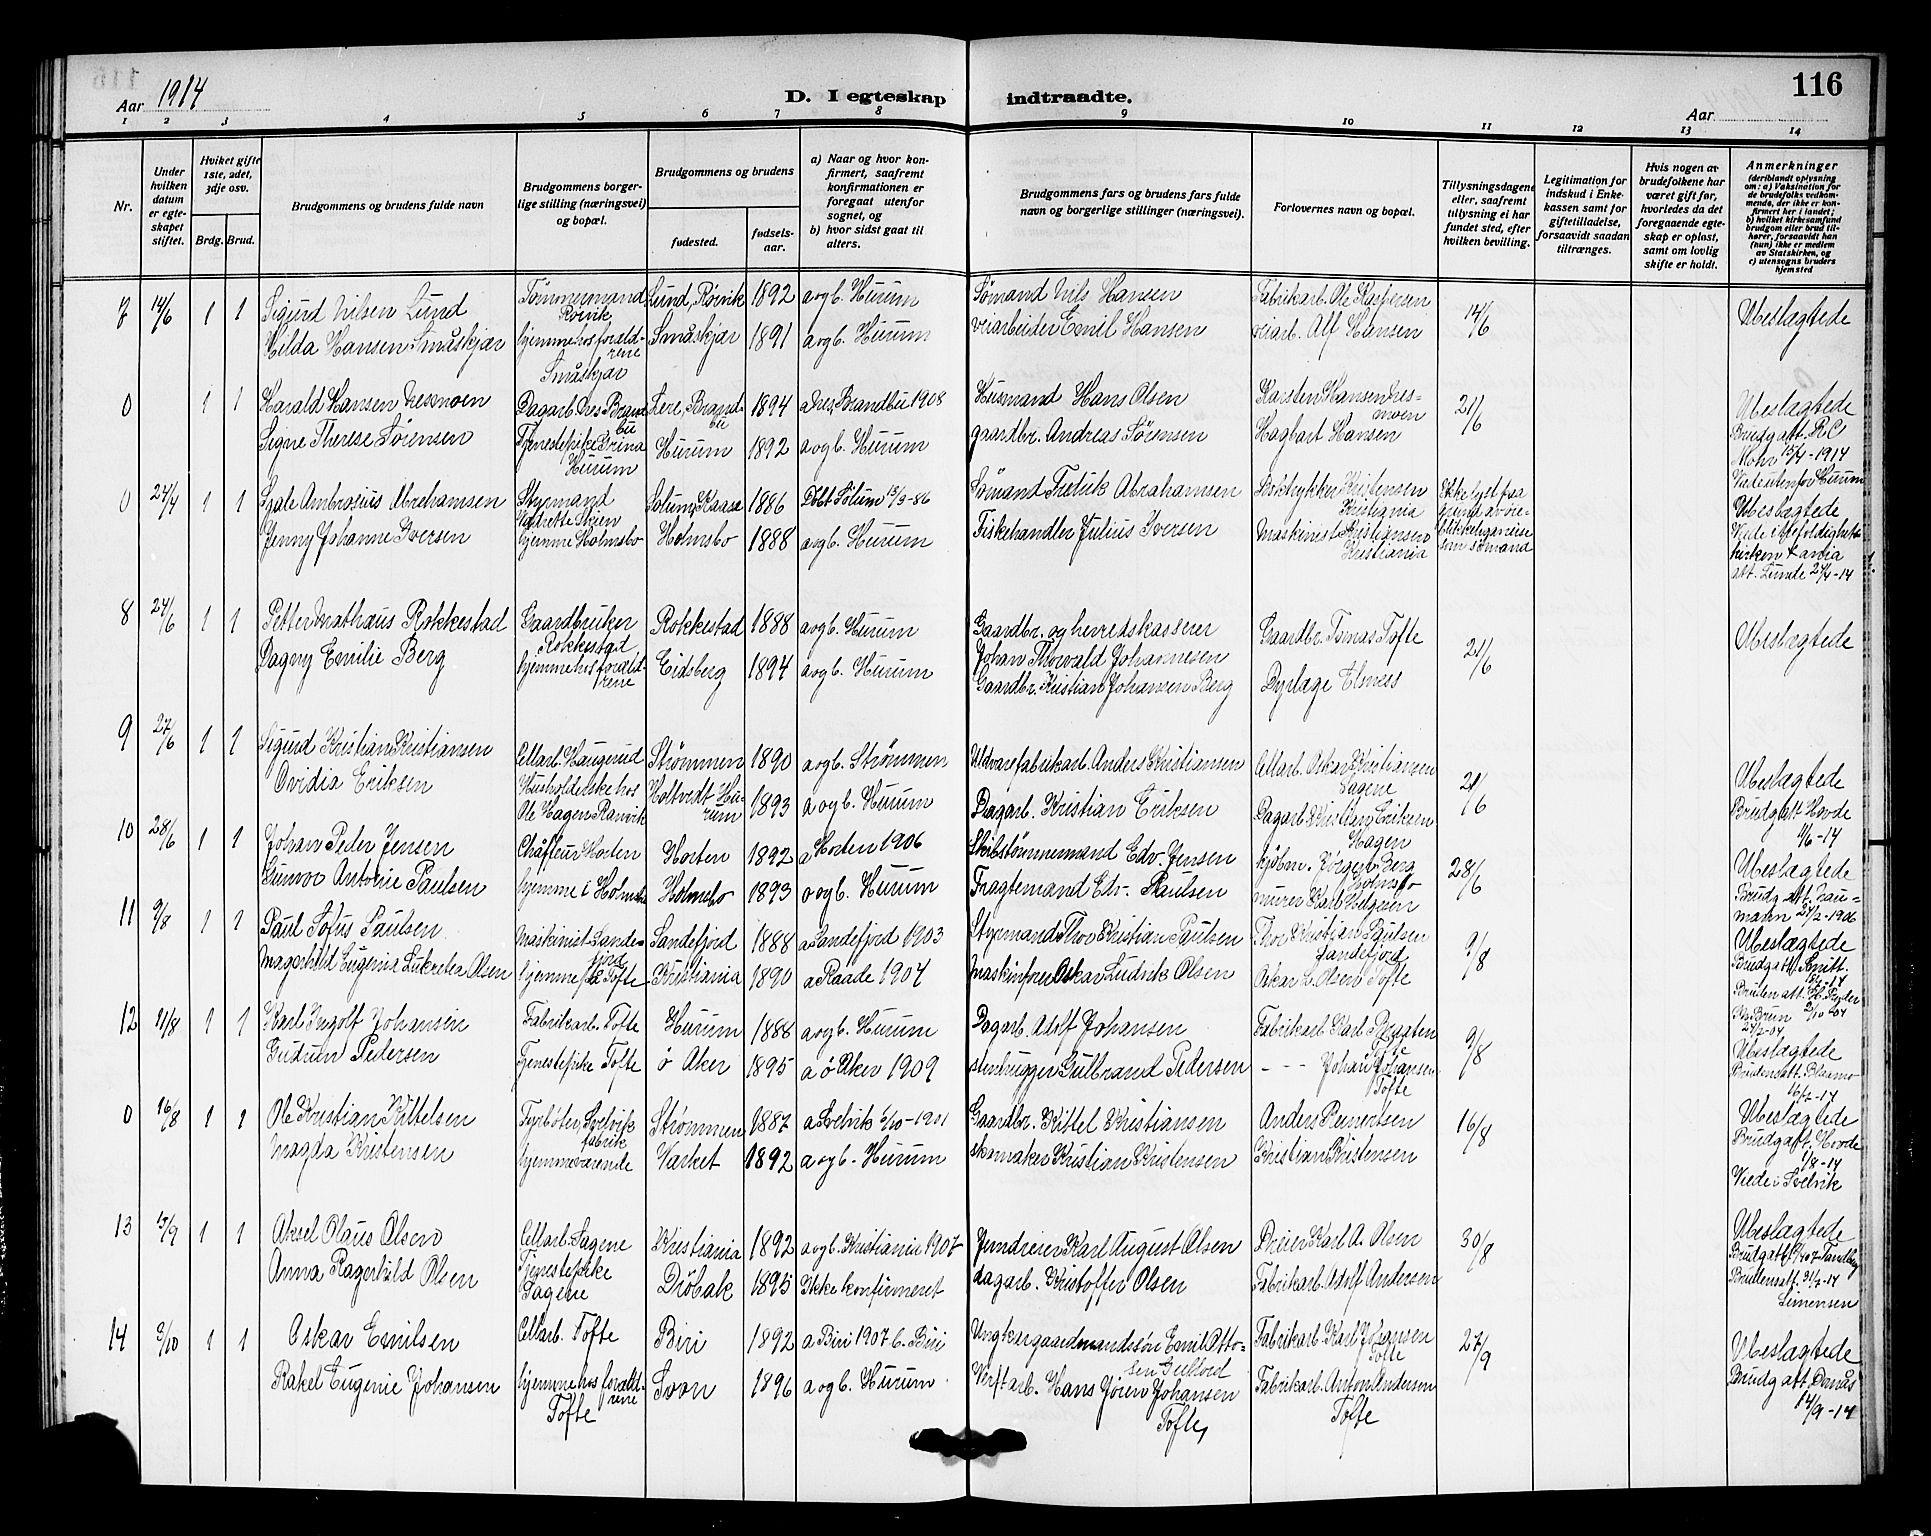 116
Aar 1914
D. I egteskap indtraadte.
Aar
1 2 3 4 5 6 7 8 9 10 11 12 13 14
Nr.
Under hvilken datum er egteskapet stiftet.
Hvilket gifte 1ste, 2det, 3dje osv.
Brdg. Brud.
Brudgommens og brudens fulde navn
Brudgommens borgerlige stilling (næringsvei) og bopæl.
Brudgommens og brudens
fødested.
fødselsaar.
a) Naar og hvor konfirmert, saafremt konfirmationen er foregaat utenfor sognet, og
b) hvor sidst gaat til alters.
Brudgommens fars og brudens fars fulde navn og borgerlige stillinger (næringsvei).
Forlovernes navn og bopæl.
Tillysningsdagene eller, saafremt tillysning ei har fundet sted, efter hvilken bevilling.
Legitimation for indskud i Enkekassen samt for giftetilladelse, forsaavidt saadan tiltrænges.
Hvis nogen av brudefolkene har været gift før, hvorledes da det foregaaende egteskap er opløst, samt om lovlig skifte er holdt.
Anmerkninger
(deriblandt oplysning om: a) Vaksination for de brudefolks vedkommende, der ikke er konfirmert her i landet; b) hvilket kirkesamfund brudgom eller brud tilhører, forsaavidt han (hun) ikke er medlem av Statskirken, og c) utensogns bruders hjemsted
7 14/6 1 1 Sigurd Nilsen Lund Tømmermand Rövik Lund, Rövik 1892 a og b. Hurum Sömand Nils Hansen Fabrikarb. Ole Kaspersen 14/6 Ubeslægtede
Hilda Hansen Småskjær hjemme hos forældrene Småskjær Småskjær 1891 a og b. Hurum veiarbeider Emil Hansen veiarb. Alf Hansen
0 1 1 Harald Hansen Nesmoen Dagarb. Nes Brandbu 1894 a Nes, Brandbu 1908 Husmand Hans Olsen Karsten Hansen Nesmoen 21/6 Ubeslægtede
Signe Therese Sørensen Tjenestepike Hurum Hurum 1892 a og b. Hurum gaardbr. Andreas Sörensen Hagbart Hansen Brudg att. 15/4-1914
Viede utenfor Hurum
0 24/4 1 1 Ambrosius Abrahamsen Styrmand Solum, 1886 Døbt Solum 13/3-86 Sömand Fredrik Abrahamsen Kristensen Kristiania Ubeslægtede
Jenny Johanne Iversen hjemme Holmsbo Holmsbo 1888 a og b. Hurum Fiskehandler Julius Iversen Maskinist Kristiansen Kristiania som sömand
att. Lunde 24/4-14
8 24/6 1 1 Petter Mathæus Rokkestad Gaardbruker Rokkestad Rokkestad 1888 a og b. Hurum Gaardbr. og herredskasserer Johan Thorvald Johannesen Gaardbr. Tomas Tofte 21/6 Ubeslægtede
Dagny Emilie Berg hjemme hos forældrene Eidsberg 1894 a og b. Hurum Gaardbr. Kristian Johansen Berg Dyrlæge Elnæs
9 27/6 1 1 Sigurd Kristian Kristiansen Cellarb. Haugerud Strømmen 1890 a og b. Strømmen Uldvarefabrikarb. Anders Kristiansen Cellarb. Oskar Kristiansen Sagene 21/6 Ubeslægtede
Ovidia Eriksen Husholderske hos Ole Hagen Ranvik Holtvedt Hurum 1893 a og b. Hurum Dagarb. Kristian Eriksen Dagarb. Kristian Eriksen Hagen Brudg att Hovde 4/6-14
10 28/6 1 1 Johan Peder Jensen Chåffeur Horten Horten 1892 a Horten 1906 Skibstömmermand Edv. Jensen kjöbm. Jörgen Berg Holmsbo 28/6 Ubeslægtede
Gunvor Antonie Paulsen hjemme i Holmsbo Holmsbo 1893 a og b. Hurum Fragtemand Edv. Paulsen murer Karl Helgesen Brudg att. Naumann 27/2-1906
11 9/8 1 1 Paul Sofus Paulsen Maskinist Sandefjord Sandefjord 1888 a Sandefjord 1903 Styrmand Thor Kristian Paulsen Thor Kristian Paulsen Sandefjord 9/8 Ubeslægtede
Magnhild Eugenia Lukretia Olsen hjemme Tofte Kristiania 1890 a Raade 1904 Maskinfører Oskar Ludvik Olsen Oskar L. Olsen Tofte
12 11/8 1 1 Karl Ingolf Johansen Fabrikarb. Tofte Hurum 1888 a og b. Hurum Dagarb. Adolf Johansen Fabrikarb. Karl Tofte 9/8 Ubeslægtede
Gudrun Pedersen Tjenestepike Tofte ö Aker 1895 a ö Aker 1909 stenhugger Gulbrand Pedersen - - - Johan Johansen Tofte
0 16/8 1 1 Ole Kristian Kittelsen Fyrbøter, Svelvik fabrik Strømmen 1887 a Svelvik 6/10-1901 Gaardbr. Kittel Kristiansen Anders Reinertsen 16/8 Ubeslægtede
Magda Kristensen hjemmeværende Værket 1892 a og b. Hurum skomaker Kristian Kristensen Kristian Kristensen Brudg att. Hovde 1/8-14
Viede i Svelvik
13 13/9 1 1 Aksel Olaus Olsen Cellarb. Sagene Kristiania 1892 a og b. Kristiania 1907 Jerndreier Karl August Olsen Dreier Karl A. Olsen 30/8 Ubeslægtede
Anna Ragnhild Olsen Tjenestepike Sagene Dröbak 1895 Ikke konfirmeret dagarb. Kristoffer Olsen Fabrikarb. Adolf Andersen Simensen
14 3/10 1 1 Oskar Emilsen Cellarb. Tofte Biri 1892 a Biri 1907 b. Biri Ungkargaardmandssön Emil Ottosen Fabrikarb. Karl Johansen Tofte 27/9 Ubeslægtede
Rakel Eugenie Johansen hjemme hos forældrene Tofte Svon 1896 a og b. Hurum Verftarb. Hans Jören Johansen Tofte, Fabrikarb. Anton Andersen Tofte Brudg att. 14/9-14